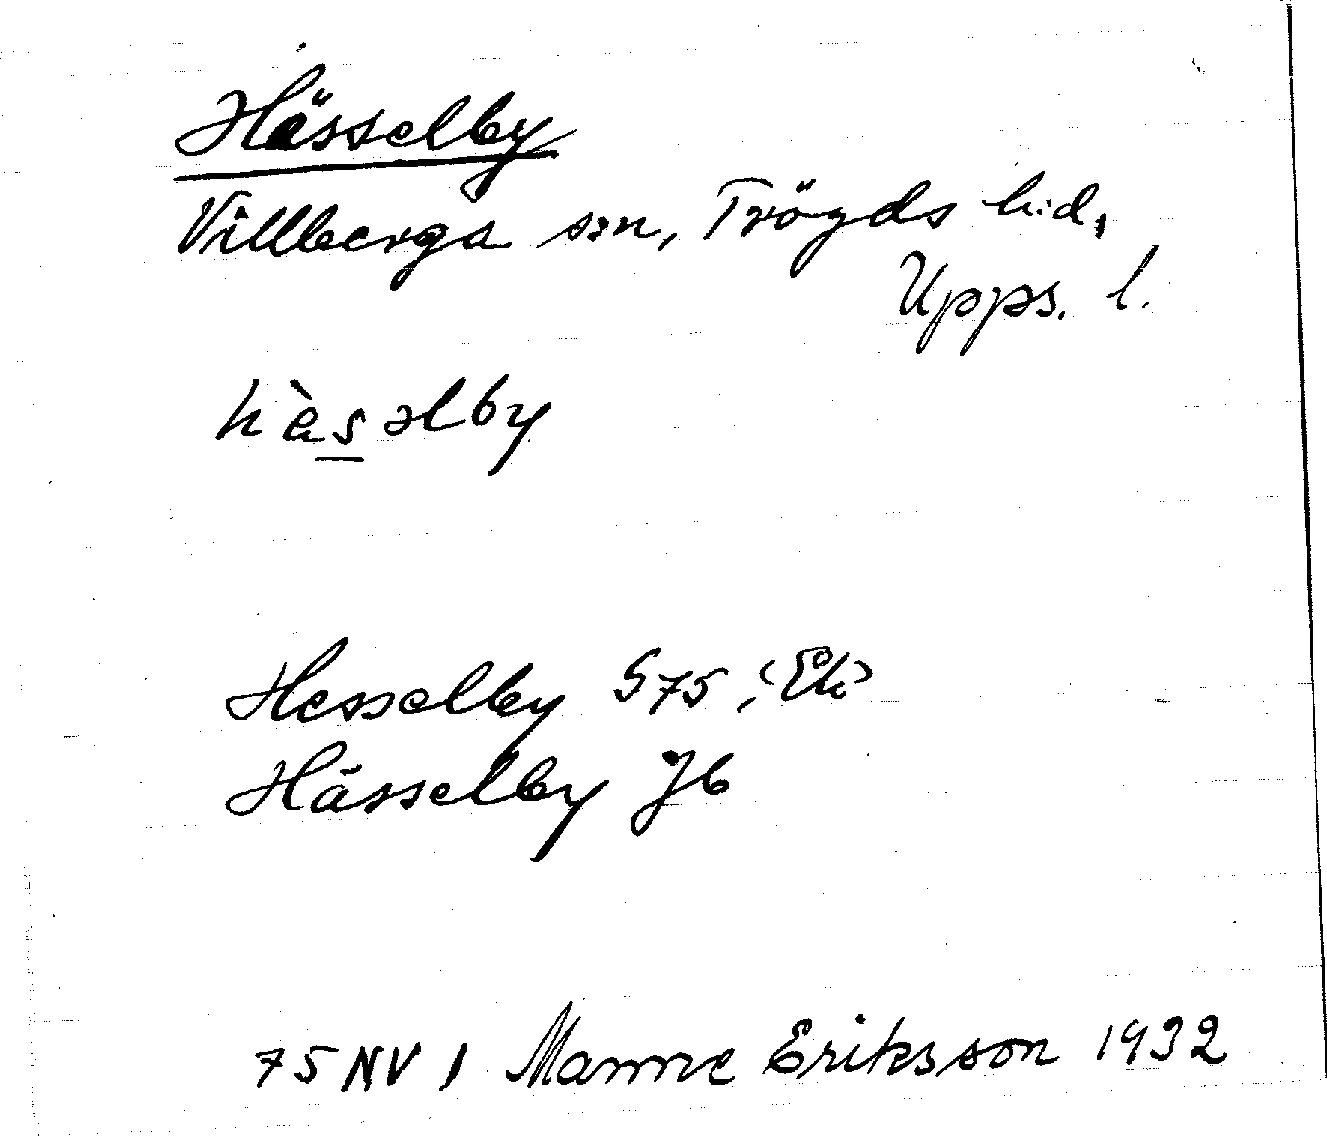 Hässelby
Villberga sn, Trögds hd,
Upps. l.
hæ̀s̲əlby
Hesselby S75, (Ek)
Hässelby Jb
75 NV 1 Manne Eriksson 1932